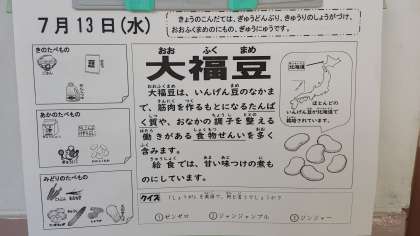 7月13日(水)
きょうのこんだては、ぎゅうどんぶり、きゅうりのしょうがづけ、
おおふくまめのにもの、ぎゅうにゅうです。
きのたべもの
あかのたべもの
みどりのたべもの
おお ふく まめ
大福豆
おおふくまめ
大福豆は、いんげん豆のなかま
で、筋肉を作るもとになるたんぱ
く質や、おなかの調子を整える
働きがある食物せんいを多く
含みます。
給食では、甘い味つけの煮も
のにしています。
北海道
ほとんどの
いんげん豆が北海道で
栽培されています。
クイズ 「しょうが」を英語で、何と言うでしょうか?
①ゼンゼロ ②ジャンジャンブル ③ジンジャー